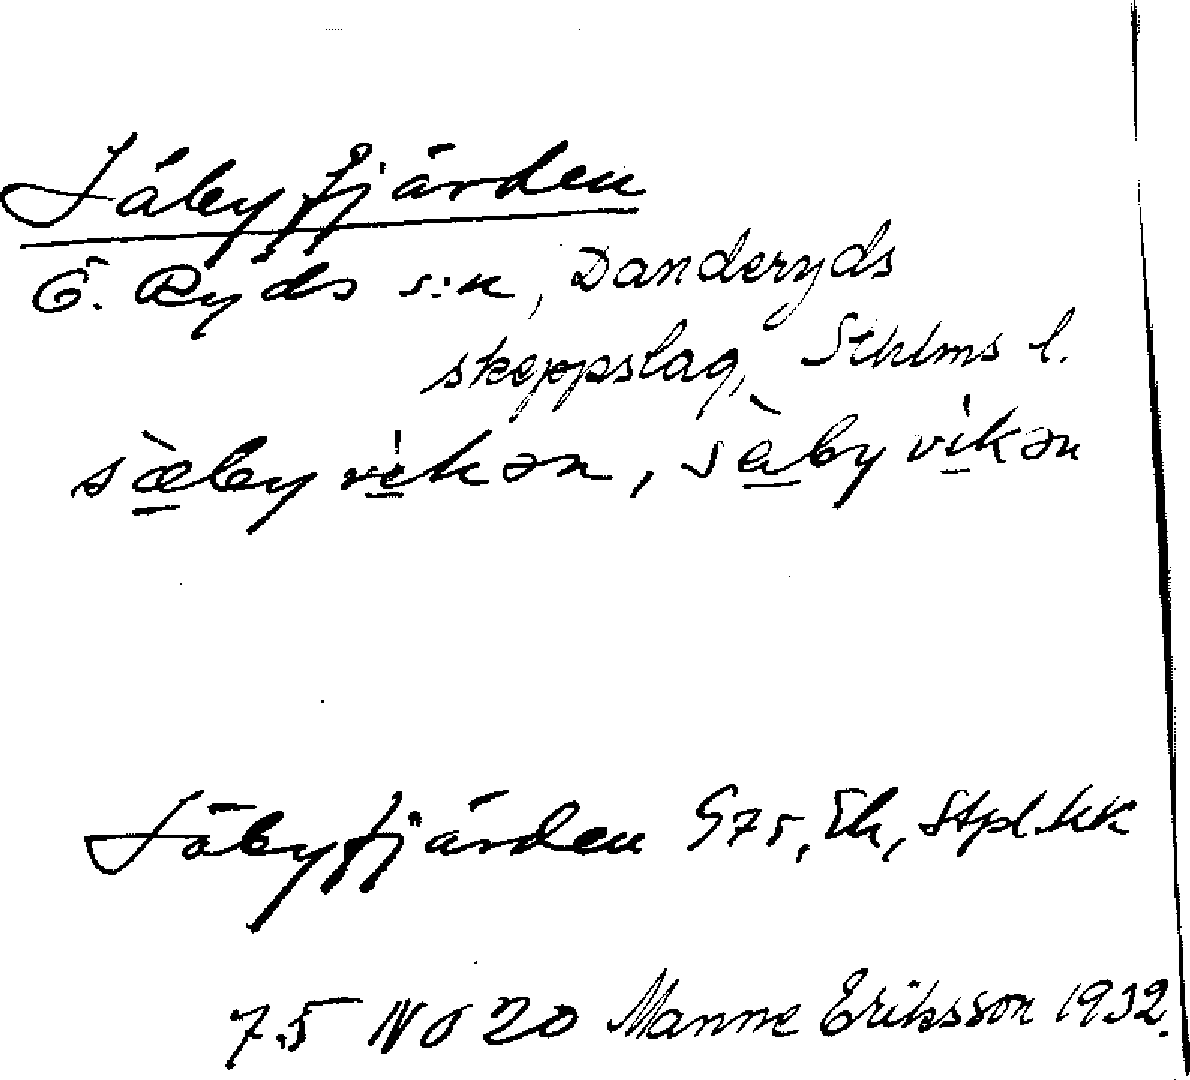 Säbyfjärden
Ö. Ryds s:n, Danderyds
skeppslag, Sthlms l.
sæ̀byvikən, sàbyvikən
Säbyfjärden G75, Ek, Stpl. kk
75 NO 20 Manne Eriksson 1932.